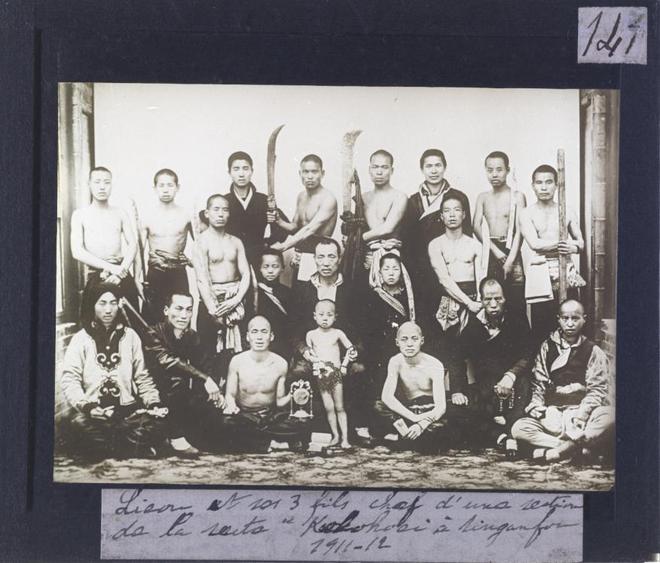 141
Liaou et ses 3 fils chef d'une section
de la secte "Kolohoei à Singanfou
1911-12